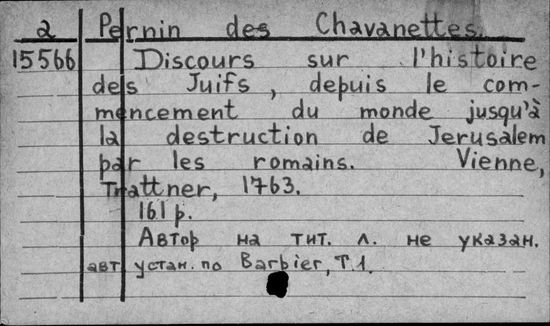 2 Pernin des Chavanettes.
15566 Discours sur l'histoire
des Juifs, depuis le com-
mencement du monde jusqu'à
la destruction de Jerusalem
par les romains. Vienne,
Trattner, 1763.
161 p.
Автор на тит. л. не указан.
авт. устан. по Barbier, T.1.